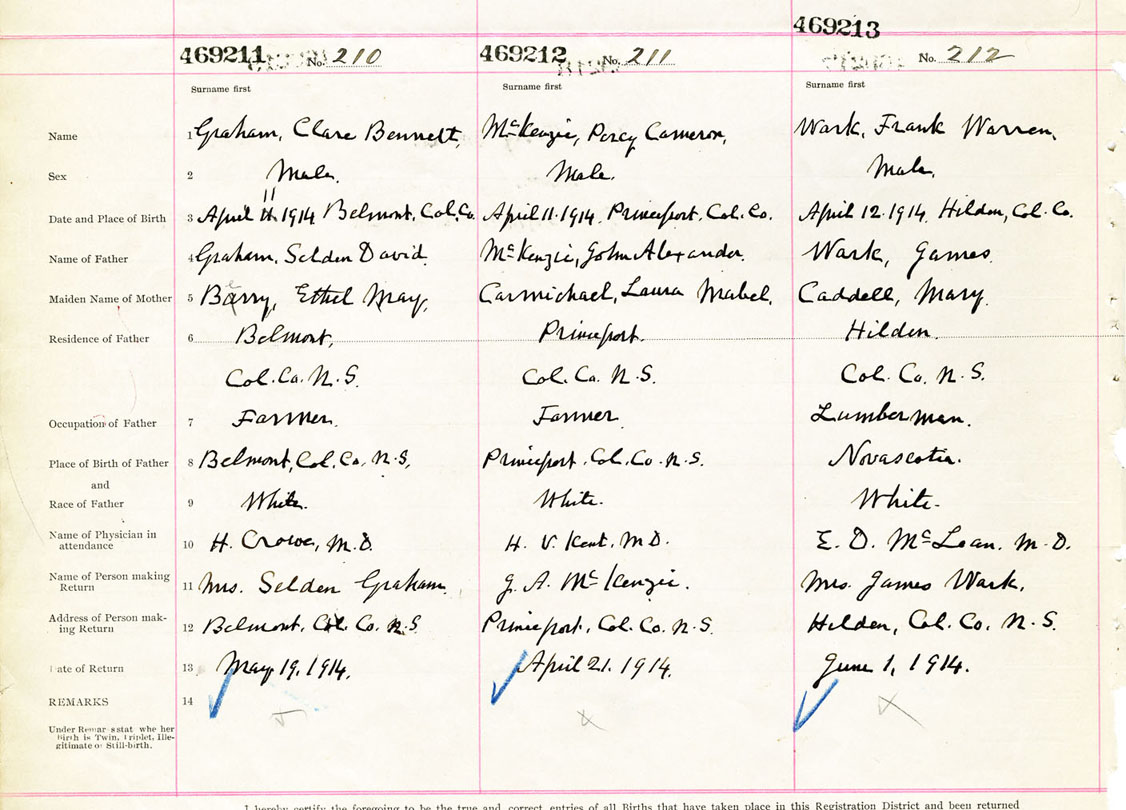 469211 No. 210 469212 No. 211 469213 No. 212
Surname first Surname first Surname first
Name 1 Graham, Clare Bennett, McKenzie, Percy Cameron, Wark, Frank Warren,
Sex 2 Male. Male. Male.
11
Date and Place of Birth 3 April 11 1914 Belmont, Col. Co. April 11. 1914. Princeport, Col. Co. April 12. 1914 Hilden, Col. Co.
Name of Father 4 Graham, Selden David McKenzie, John Alexander. Wark, James
Maiden Name of Mother 5 Barry, Ethel May, Carmichael, Laura Mabel, Caddell, Mary.
Residence of Father 6 Belmont, Princeport. Hilden.
Col. Co. N. S. Col. Co. N. S. Col. Co. N. S.
Occupation of Father 7 Farmer. Farmer Lumberman.
Place of Birth of Father 8 Belmont, Col. Co. N. S, Princeport. Col. Co. N. S. Novascotia.
and
Race of Father 9 White. White. White.
Name of Physician in
attendance 10 H. Crowe, M. D. H. V. Kent, M D. E. D. McLean. M. D.
Name of Person making
Return 11 Mrs. Selden Graham. J. A. McKenzie. Mrs. James Wark,
Address of Person mak-
ing Return 12 Belmont, Col. Co. N. S. Princeport, Col. Co. N. S. Hilden, Col. Co. N. S.
Date of Return 13 May 19, 1914. April 21. 1914. June 1, 1914.
REMARKS 14
Under Remarks stat whe her
Birth is Twin, Triplet, Ille-
gitimate or Still-birth.
I hereby certify the foregoing to be the true and correct entries of all Births that have taken place in this Registration District and been returned